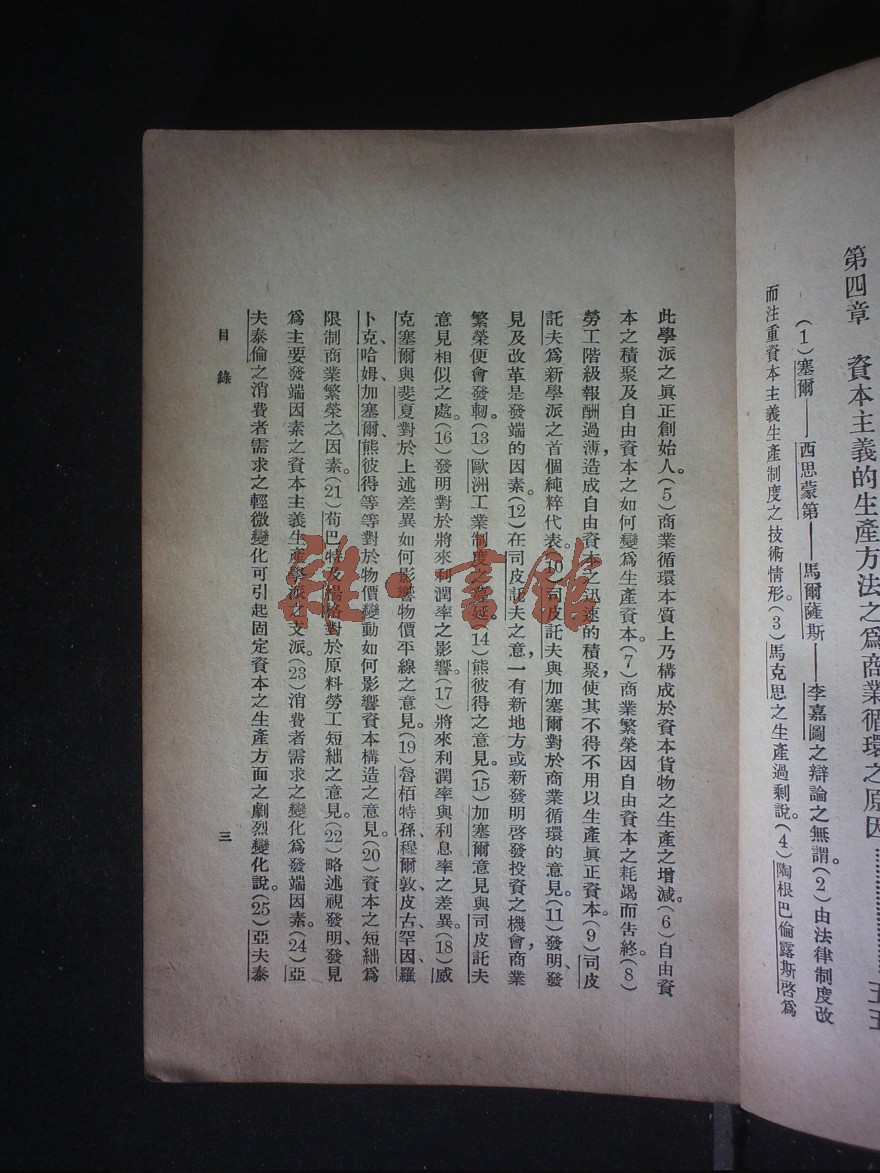 第四章　資本主義的生產方法之爲商業循環之原因…………五五
(1)塞爾——西思蒙第——馬爾薩斯——李嘉圖之辯論之無謂。(2)由法律制度改
而注重資本主義生產制度之技術情形。(3)馬克思之生產過剩說。(4)陶根巴倫露斯啓爲
此學派之眞正創始人。(5)商業循環本質上乃構成於資本貨物之生產之增減。(6)自由資
本之積聚及自由資本之如何變爲生產資本。(7)商業繁榮因自由資本之耗竭而吿終。(8)
勞工階級報酬過薄，造成自由資本之迅速的積聚，使其不得不用以生產眞正資本。(9)司皮
託夫爲新學派之首個純粹代表。(10)司皮託夫與加塞爾對於商業循環的意見。(11)發明、發
見及改革是發端的因素。(12)在司皮託夫之意，一有新地方或新發明啓發投資之機會，商業
繁榮便會發軔。(13)歐洲工業制度之蔓延。(14)熊彼得之意見。(15)加塞爾意見與司皮託夫
意見相似之處。(16)發明對於將來利潤率之影響。(17)將來利潤率與利息率之差異。(18)威
克塞爾與斐夏對於上述差異如何影響物價平線之意見。(19)魯栢特孫、穆爾敦、皮古、罕因、羅
卜克、哈姆、加塞爾、熊彼得等等對於物價變動如何影響資本構造之意見。(20)資本之短絀爲
限制商業繁榮之因素。(21)荀巴特及楊格對於原料勞工短絀之意見。(22)略述視發明、發見
爲主要發端因素之資本主義生產學派之支派。(23)消費者需求之變化爲發端因素。(24)亞
夫泰倫之消費者需求之輕微變化可引起固定資本之生產方面之劇烈變化說。(25)亞夫泰
目錄
三
雜·書館